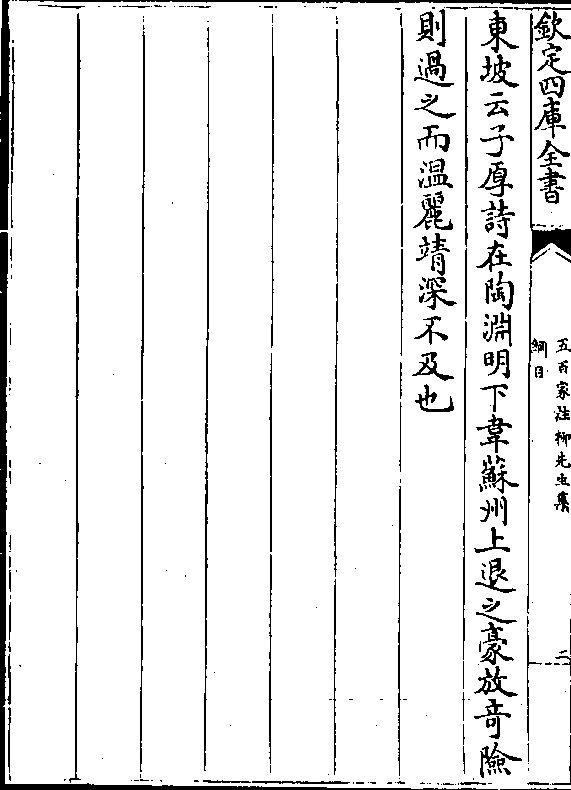 欽定四庫全書
五百家注柳先生集
綱目
二
東坡云子厚詩在陶淵明下韋蘇州上退之豪放奇險
則過之而温麗靖深不及也